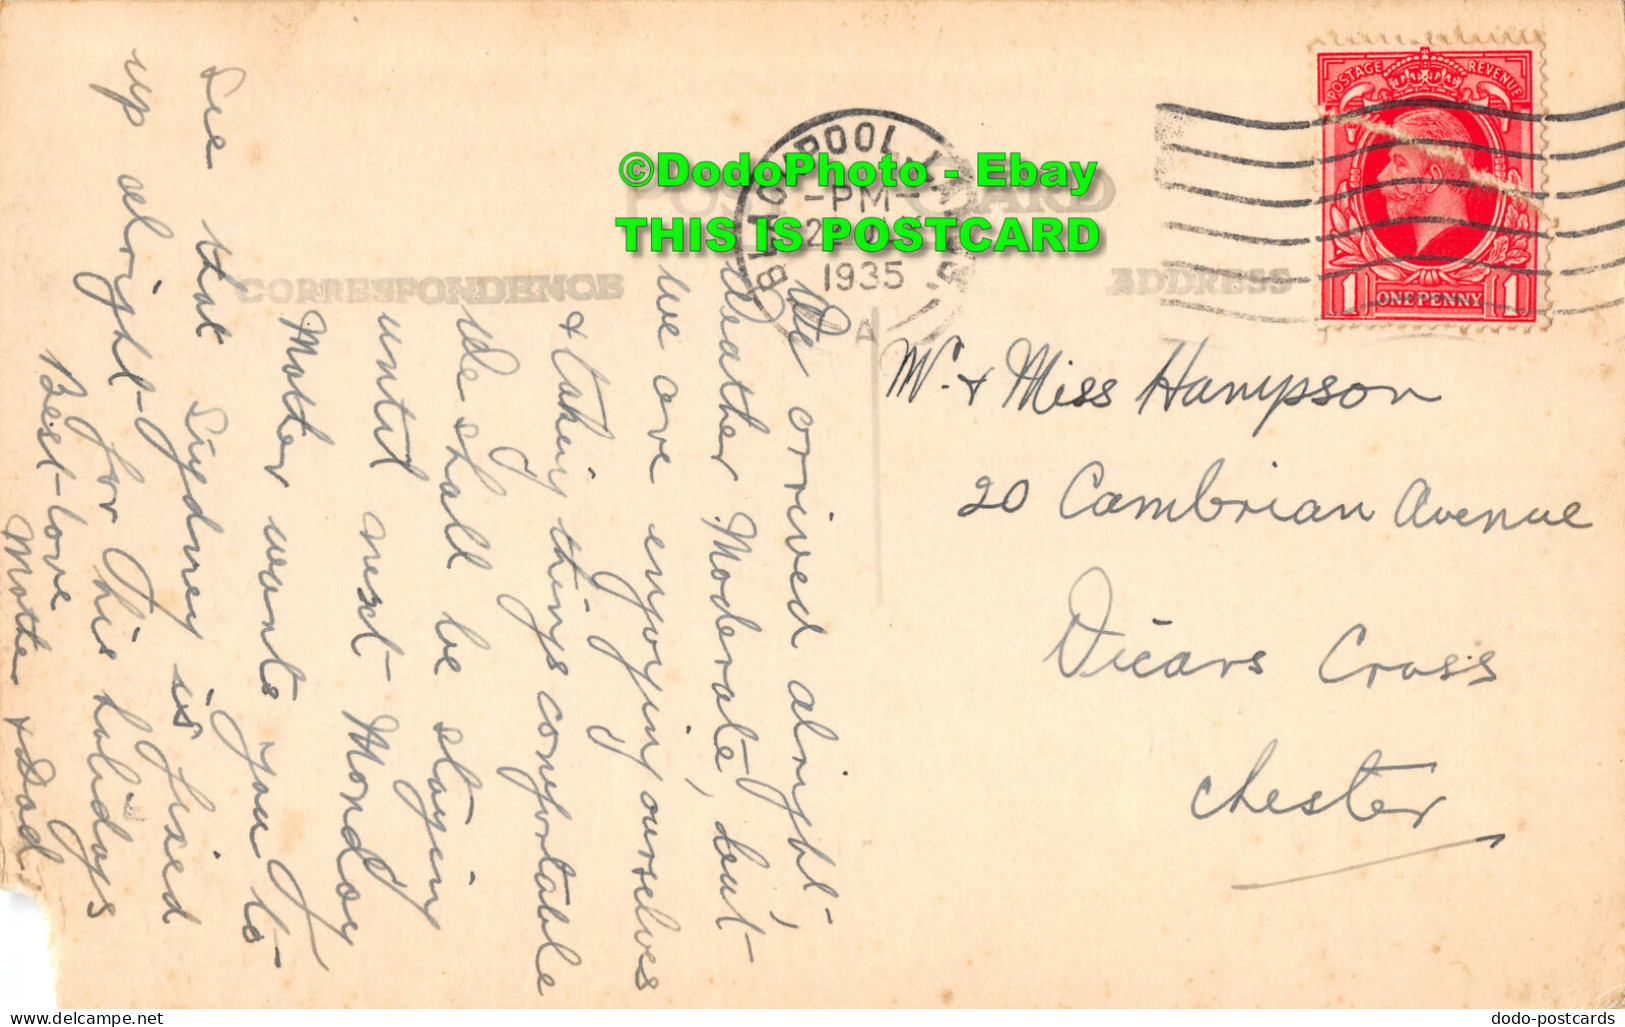 ©DodoPhoto - Ebay
THIS IS POSTCARD
POST CARD
CORRESPONDENCE
ADDRESS
BLACKPOOL
-PM-
1935
A
POSTAGE REVENUE
1 ONE PENNY 1
Mr. & Miss Hampson
20 Cambrian Avenue
Vicars Cross
Chester
We arrived alright,
Weather Moderate, but
we are enjoying ourselves
& taking things comfortable
We shall be staying
until next Monday
Mother wants you to
See that Sydney is fixed
up alright for this holidays
Best love
Mother & Dad
dodo-postcards
www.delcampe.net